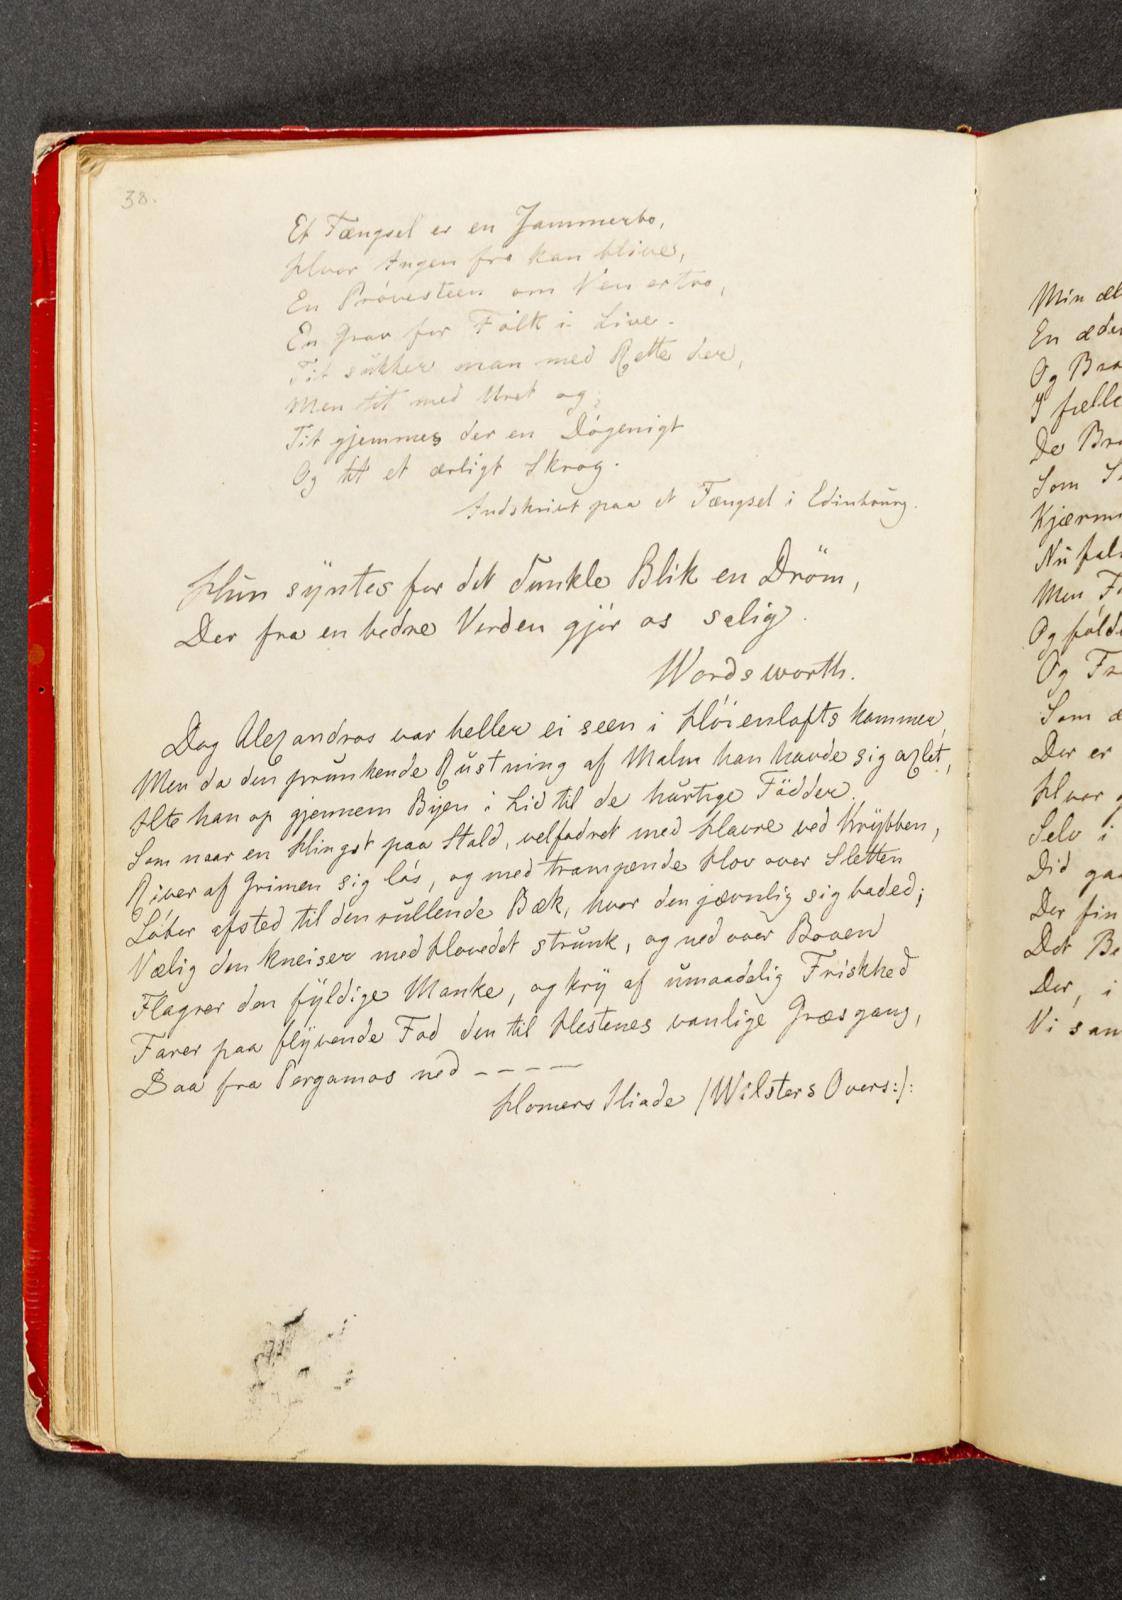 38.
Et Fængsel er en Jammerbo,
Hvor Ingen fro kan blive,
En Prøvesteen om Ven er tro,
En Grav for Folk i Live.
Tit sukker man med Rette der,
Men tit med Uret og;
Tit gjemmes der en Døgenigt
Og tit et ærligt Skrog.
Indskrivt paa et Fængsel i Edinbourg.
Hun syntes for det dunkle Blik en Dröm,
Der fra en bedre Verden gjør os salig.
Wordsworth.
Dog Alexandros var heller ei seen i Høienlofts kammer,
Men da den prunkende Rustning af Malm han havde sig axlet,
Ilte han op gjennem Byen i Lid til de hurtige Fødder.
Som naar en Hingst paa Stald, velfodret med Havre ved Krybben,
River af Grimen sig løs, og med trampende Hov over Sletten
Løber afsted til den rullende Bæk, hvor den jævnlig sig baded;
Vælig den kneiser med Hovedet strunk, og ned over Boven
Flagrer den fyldige Manke, og kry af umaadelig Friskhed
Farer paa flyvende Fod den til Hestenes vanlige Græsgang,
Saa fra Pergamos ned -----
Homers Iliade /Wilsters Overs:/:
Min æl
En æde
Og Bra
I fælle
De Bra
Som S
Kjærm
Nu fal
Men F
Og føld
Og Fr
Som æ
Der er
Hvor g
Selv i
Did ga
Der fin
Det Be
Der, i
Vi san